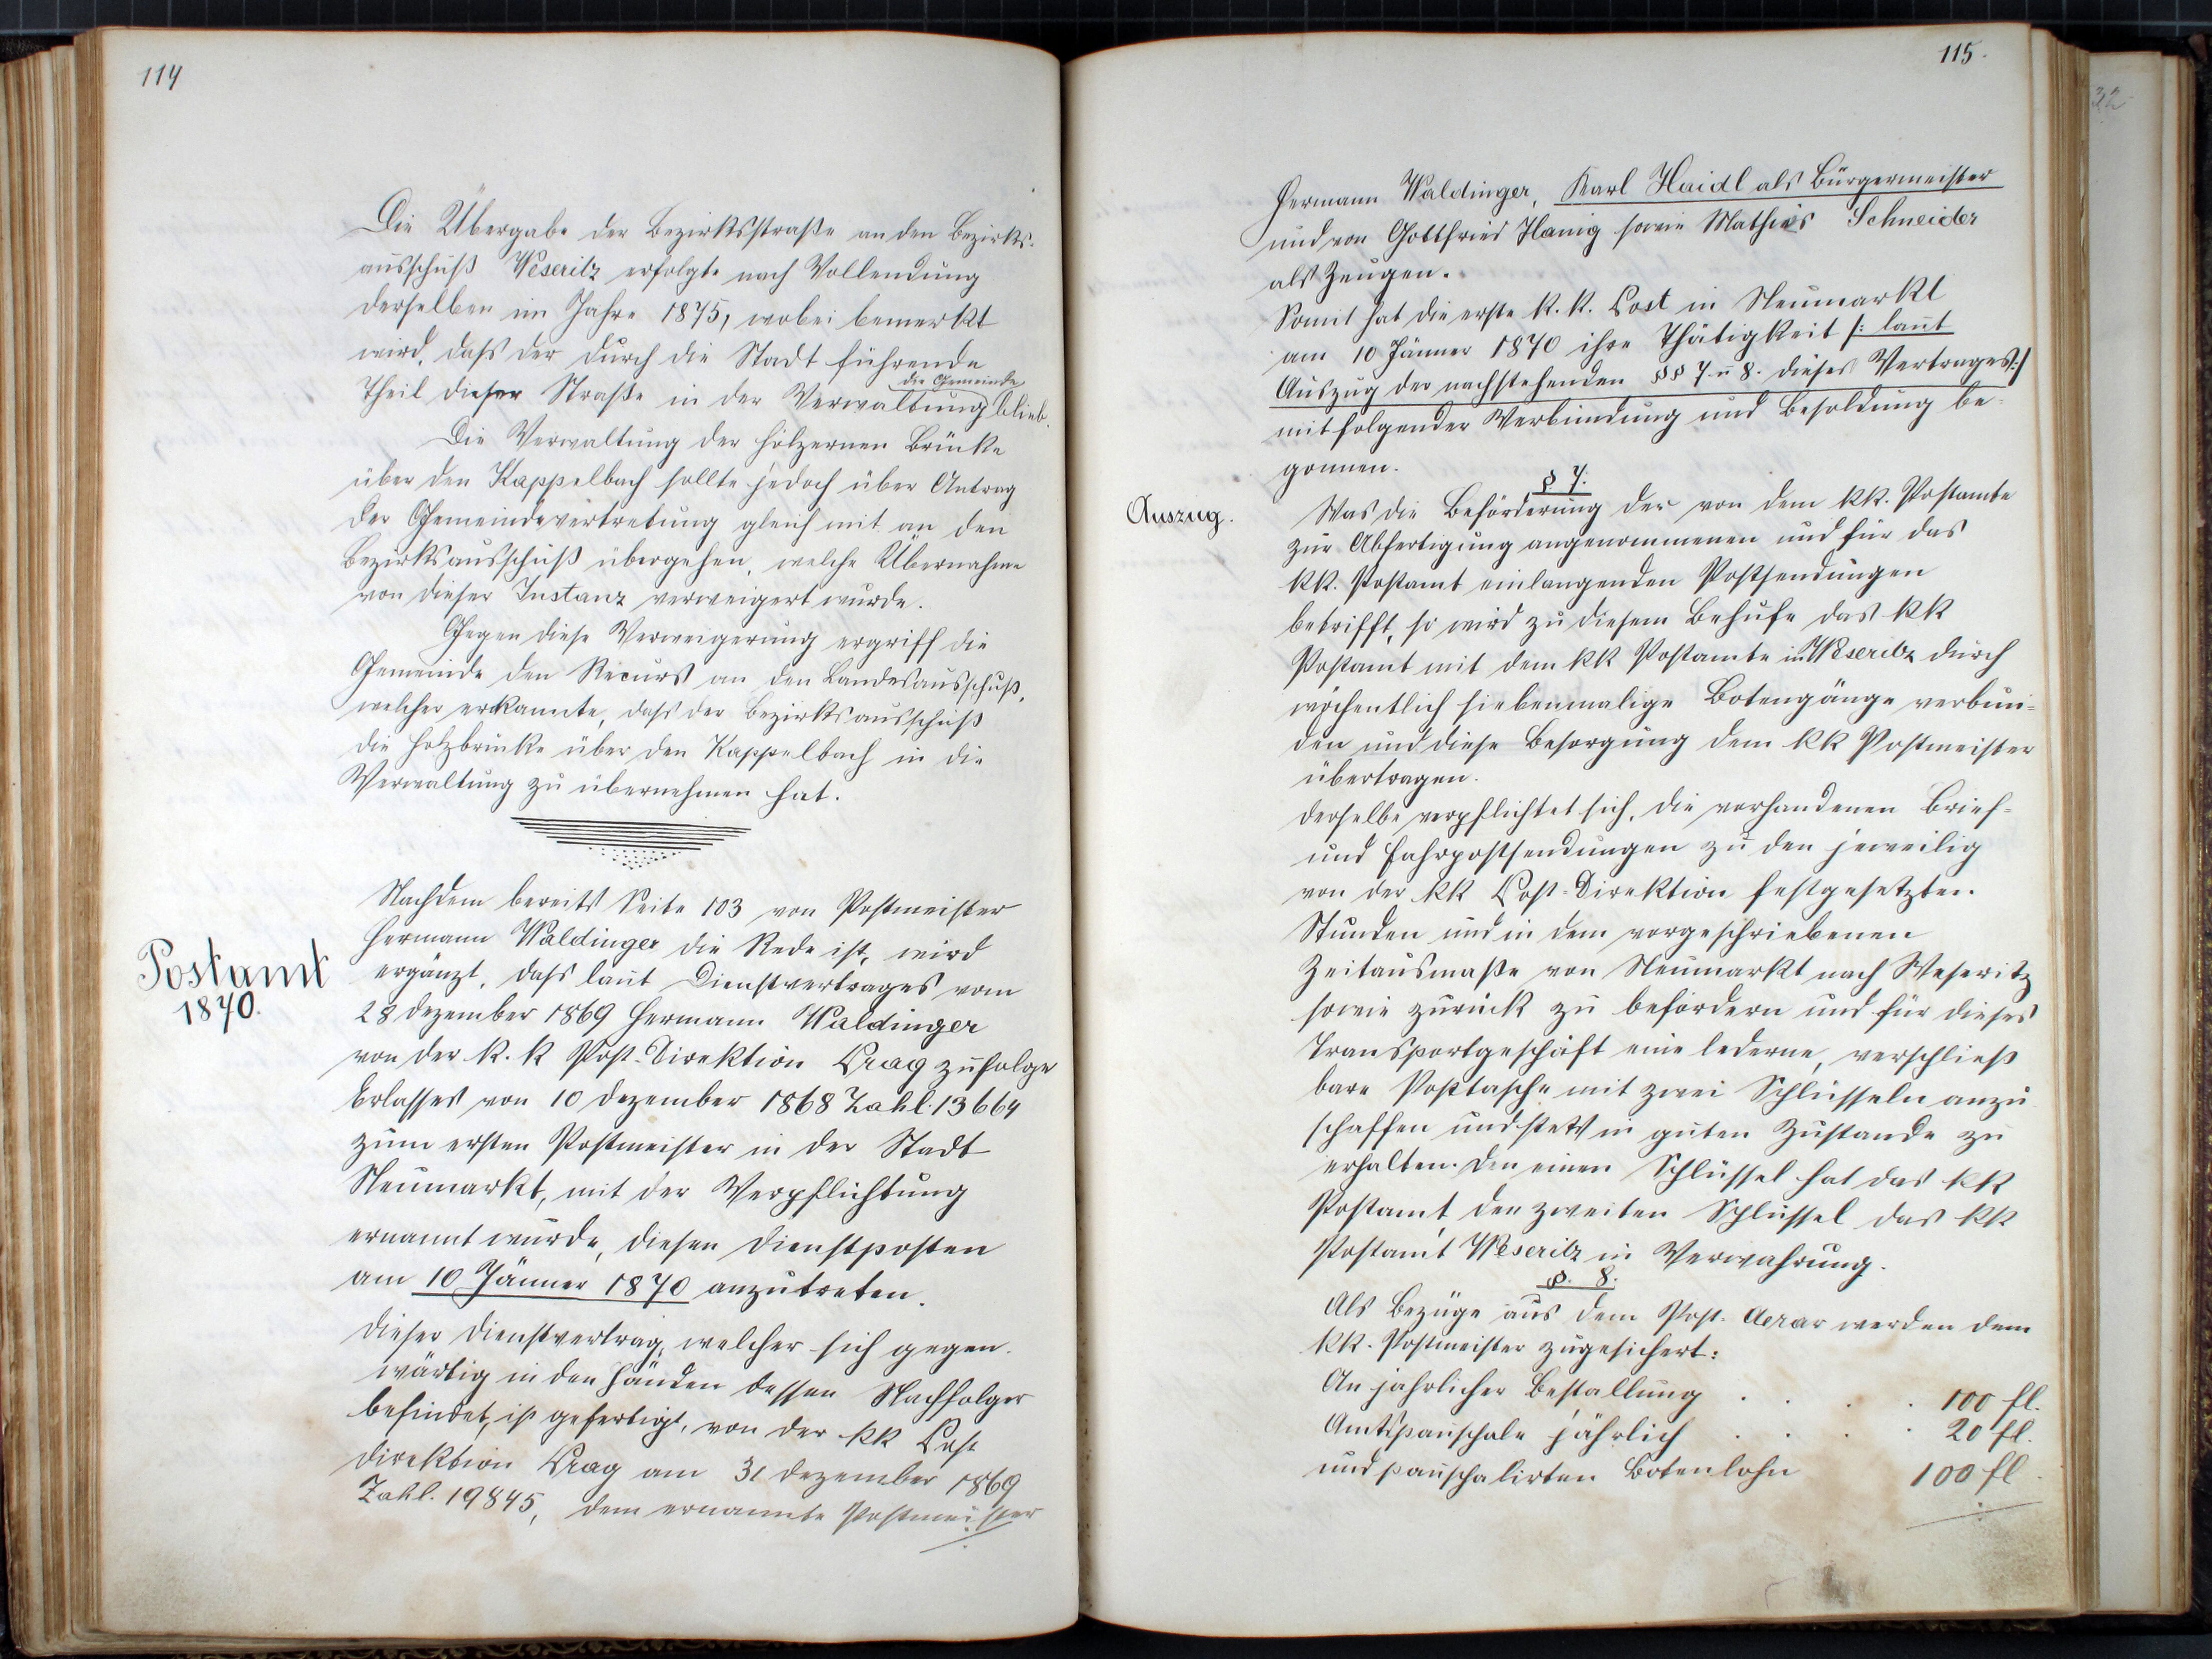 114
Die Übergabe der Bezirksstraße an den Bezirks-
ausschuß Weseritz erfolgte nach Vollendung
derselben im Jahre 1875, wobei bemerkt
wird, dass der durch die Stadt führende
Theil dieser Straße in der Verwaltung die Gemeinde blieb.
Die Verwaltung der hölzernen Brücke
über den Kappelbach sollte jedoch über Antrag
der Gemeindevertretung gleich mit an den
Bezirksausschuß übergehen, welche Übernahme
von dieser Instanz verweigert wurde.
Gegen diese Verweigerung ergriff die
Gemeinde den Recurs an den Landesausschuß,
welcher erkannte, dass der Bezirksausschuß
die Holzbrücke über den Kappelbach in die
Verwaltung zu übernehmen hat.
Postamt
1870.
Nachdem bereits Seite 103 von Postmeister
Hermann Waldinger die Rede ist, wird
ergänzt, dass laut Dienstvertrages vom
28 Dezember 1869 Hermann Waldinger
von der k. k Post-Direktion Prag zufolge
Erlasses von 10 Dezember 1868 Zahl. 13664
zum ersten Postmeister in der Stadt
Neumarkt, mit der Verpflichtung
ernannt wurde, diesen Dienstposten
am 10 Jänner 1870 anzutreten.
Dieser Dienstvertrag, welcher sich gegen-
wärtig in den Händen dessen Nachfolger
befindet, ist gefertigt, von der kk Post
direktion Prag am 31 Dezember 1869
Zahl. 19845, dem ernannte Postmeister
115.
Hermann Waldinger, Karl Haidl als Bürgermeister
und von Gottfried Hanig sowie Mathias Schneider
als Zeugen.
Somit hat die erste k. k. Post in Neumarkt
am 10 Jänner 1870 ihre Thätigkeit /: laut
Auszug der nachstehenden §§ 7. u 8. dieses Vertrages:/
mit folgender Verbindung und Besoldung be-
gonnen.
§ 7.
Auszug.
Was die Beförderung der von dem kk. Postamte
zur Abfertigung angenommenen und für das
kk. Postamt einlangenden Postsendungen
betrifft, so wird zu diesem Behufe das kk
Postamt mit dem kk Postamte in Weseritz durch
wöchentlich siebenmalige Botengänge verbun-
den und diese Besorgung dem kk Postmeister
übertragen.
Derselbe verpflichtet sich, die vorhandenen Brief-
und Fahrpostsendungen zu den jeweilig
von der kk Post-Direktion festgesetzten
Stunden und in dem vorgeschriebenen
Zeitausmaße von Neumarkt nach Weseritz
sowie zurück zu befördern und für dieses
Transportgeschäft eine lederne, verschließ
bare Posttasche mit zwei Schlüsseln anzu
schaffen und stets in guten Zustande zu
erhalten. Den einen Schlüssel hat das kk
Postamt, den zweiten Schlüssel das kk
Postamt Weseritz in Verwahrung.
§. 8.
Als Bezüge aus dem Post-Aerar werden dem
kk. Postmeister zugesichert:
An jährlicher Bestallung . . . . 100 fl.
Amtspauschale jährlich . . . . 20 fl.
und pauschalirten Botenlohn 100 fl